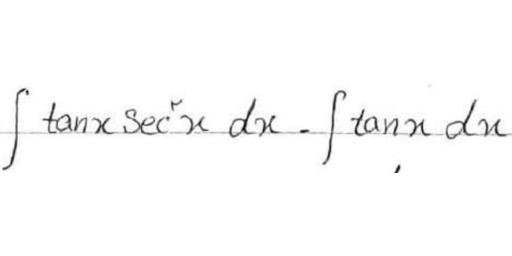 ∫ tanx sec²x dx - ∫ tanx dx